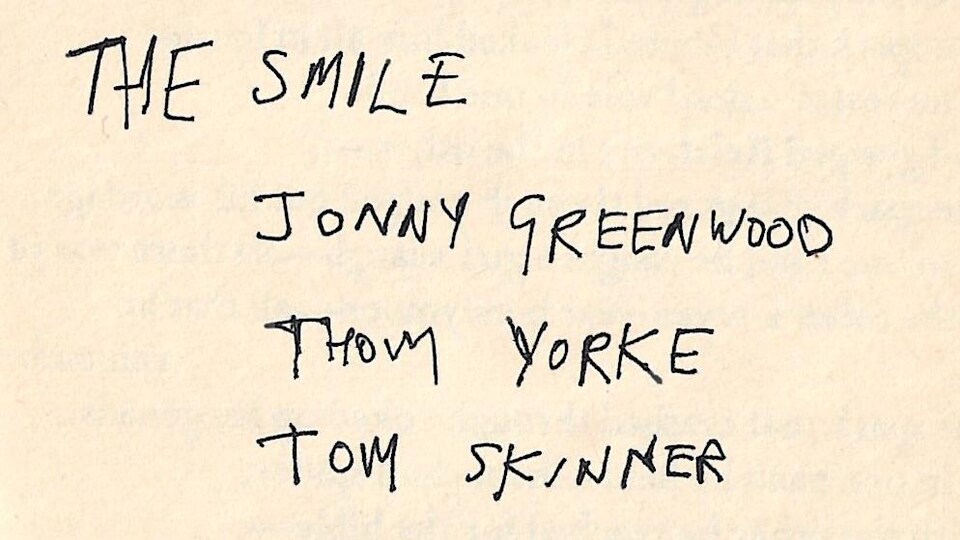 THE SMILE
JONNY GREENWOOD
THOM YORKE
TOM SKINNER